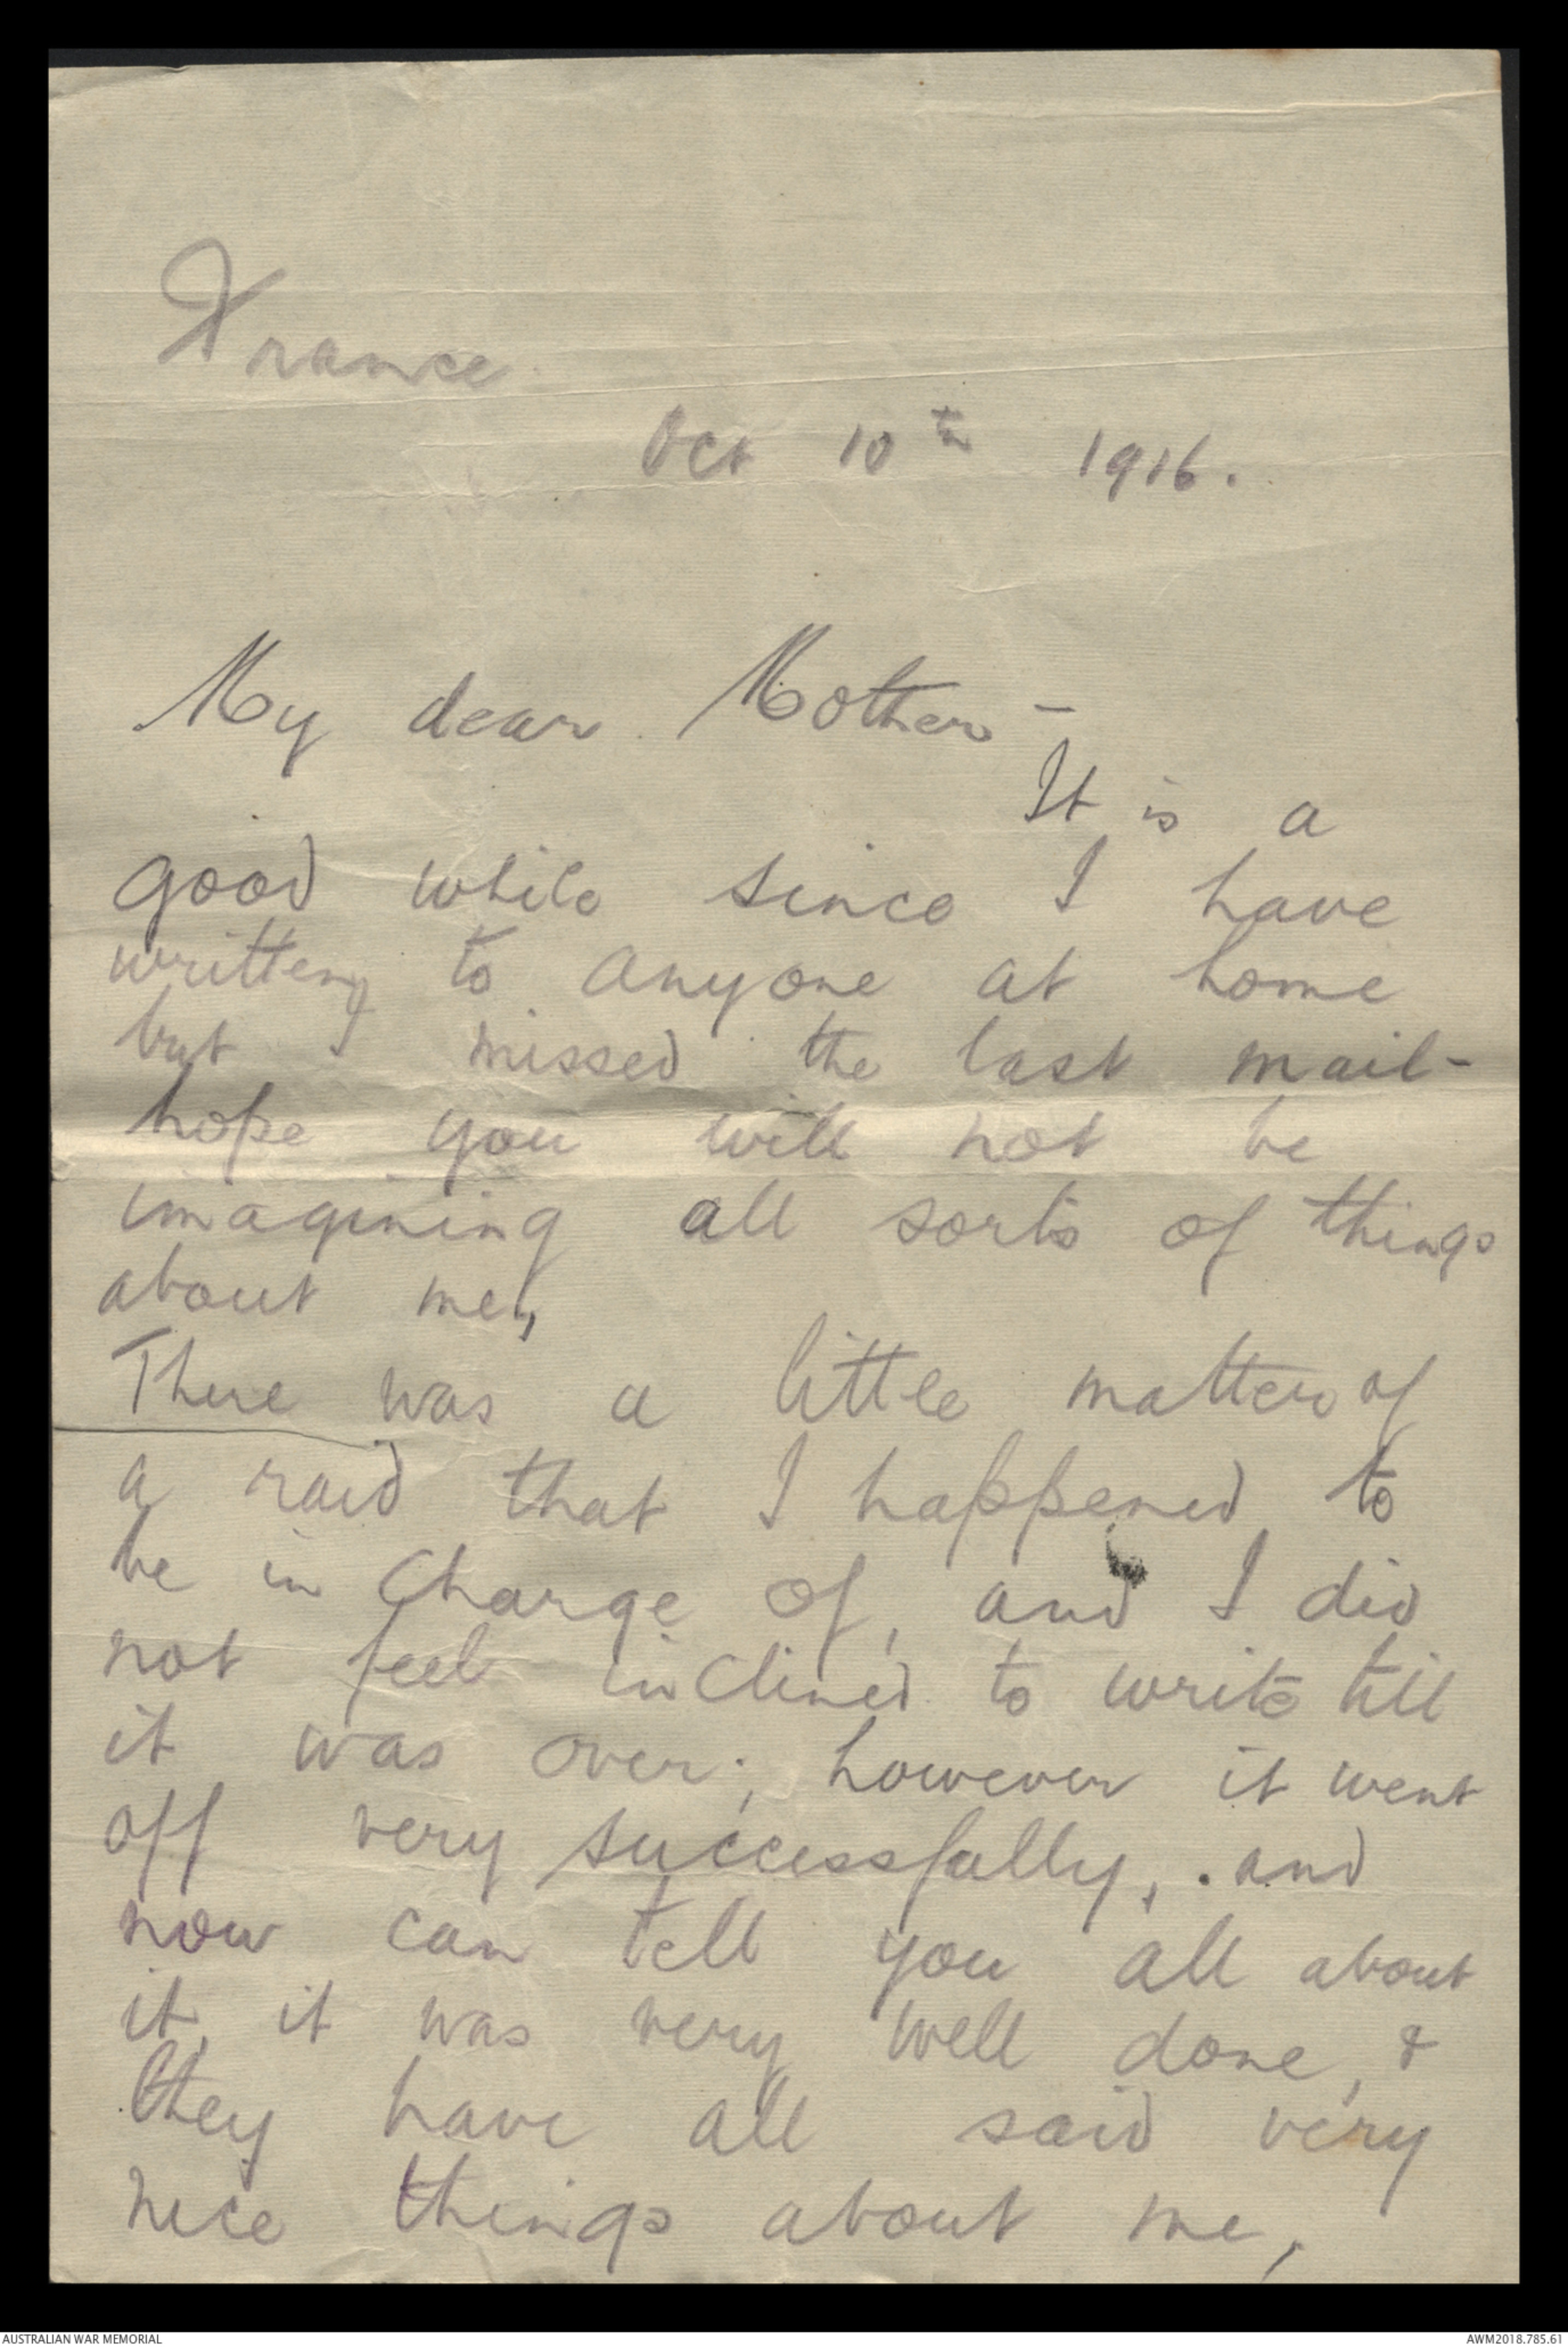 France
Oct 10th 1916.
My dear Mother -
It is a
good while since I have
written to anyone at home
but I missed the last mail -
hope you will not be
imagining all sorts of things
about me,
There was a little matter of
a raid that I happened to
be in charge of, and I did
not feel inclined to write till
it was over; however it went
off very successfully, and
now can tell you all about
it, it was very well done, &
they have all said very
nice things about me,
AUSTRALIAN WAR MEMORIAL
AWM2018.785.61